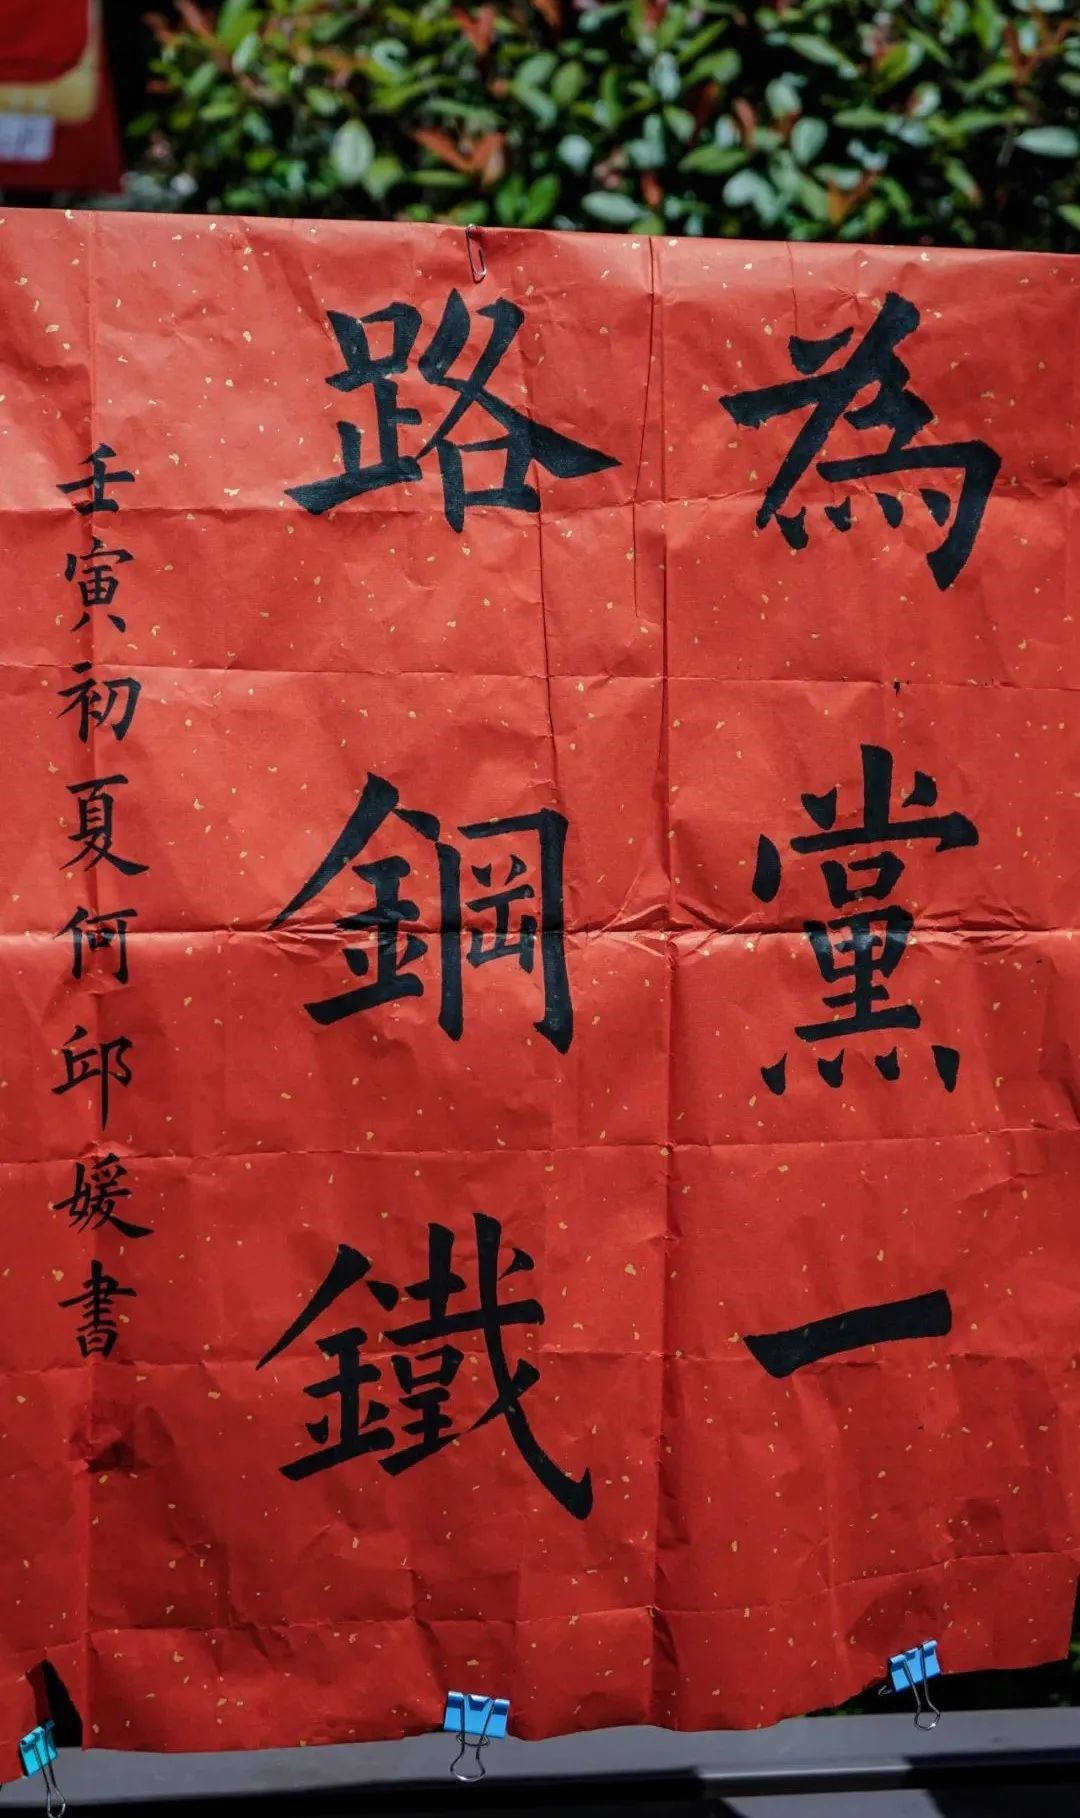 為黨一
路鋼鐵
壬寅初夏何邱媛書